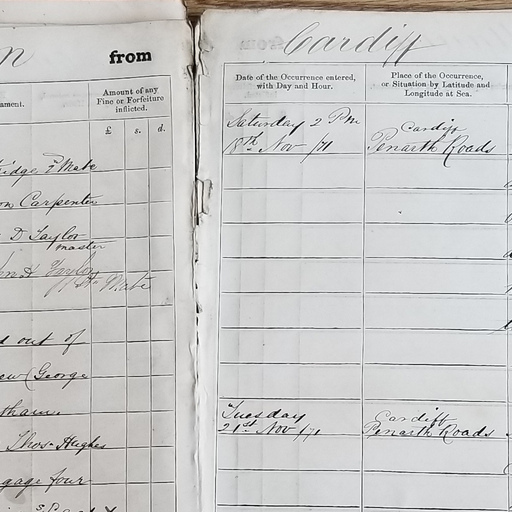 from
Amount of any
Fine or Forfeiture
inflicted.
£ s. d.
Mate
Carpenter
D Taylor
master
Taylor
Mate
out of
George
Thos Hughes
four
Cardiff
Date of the Occurrence entered,
with Day and Hour.
Place of the Occurrence,
or Situation by Latitude and
Longitude at Sea.
Saturday 2 Pm
18th Nov /71
Cardiff
Penarth Roads
Tuesday
21st Nov /71
Cardiff
Penarth Roads